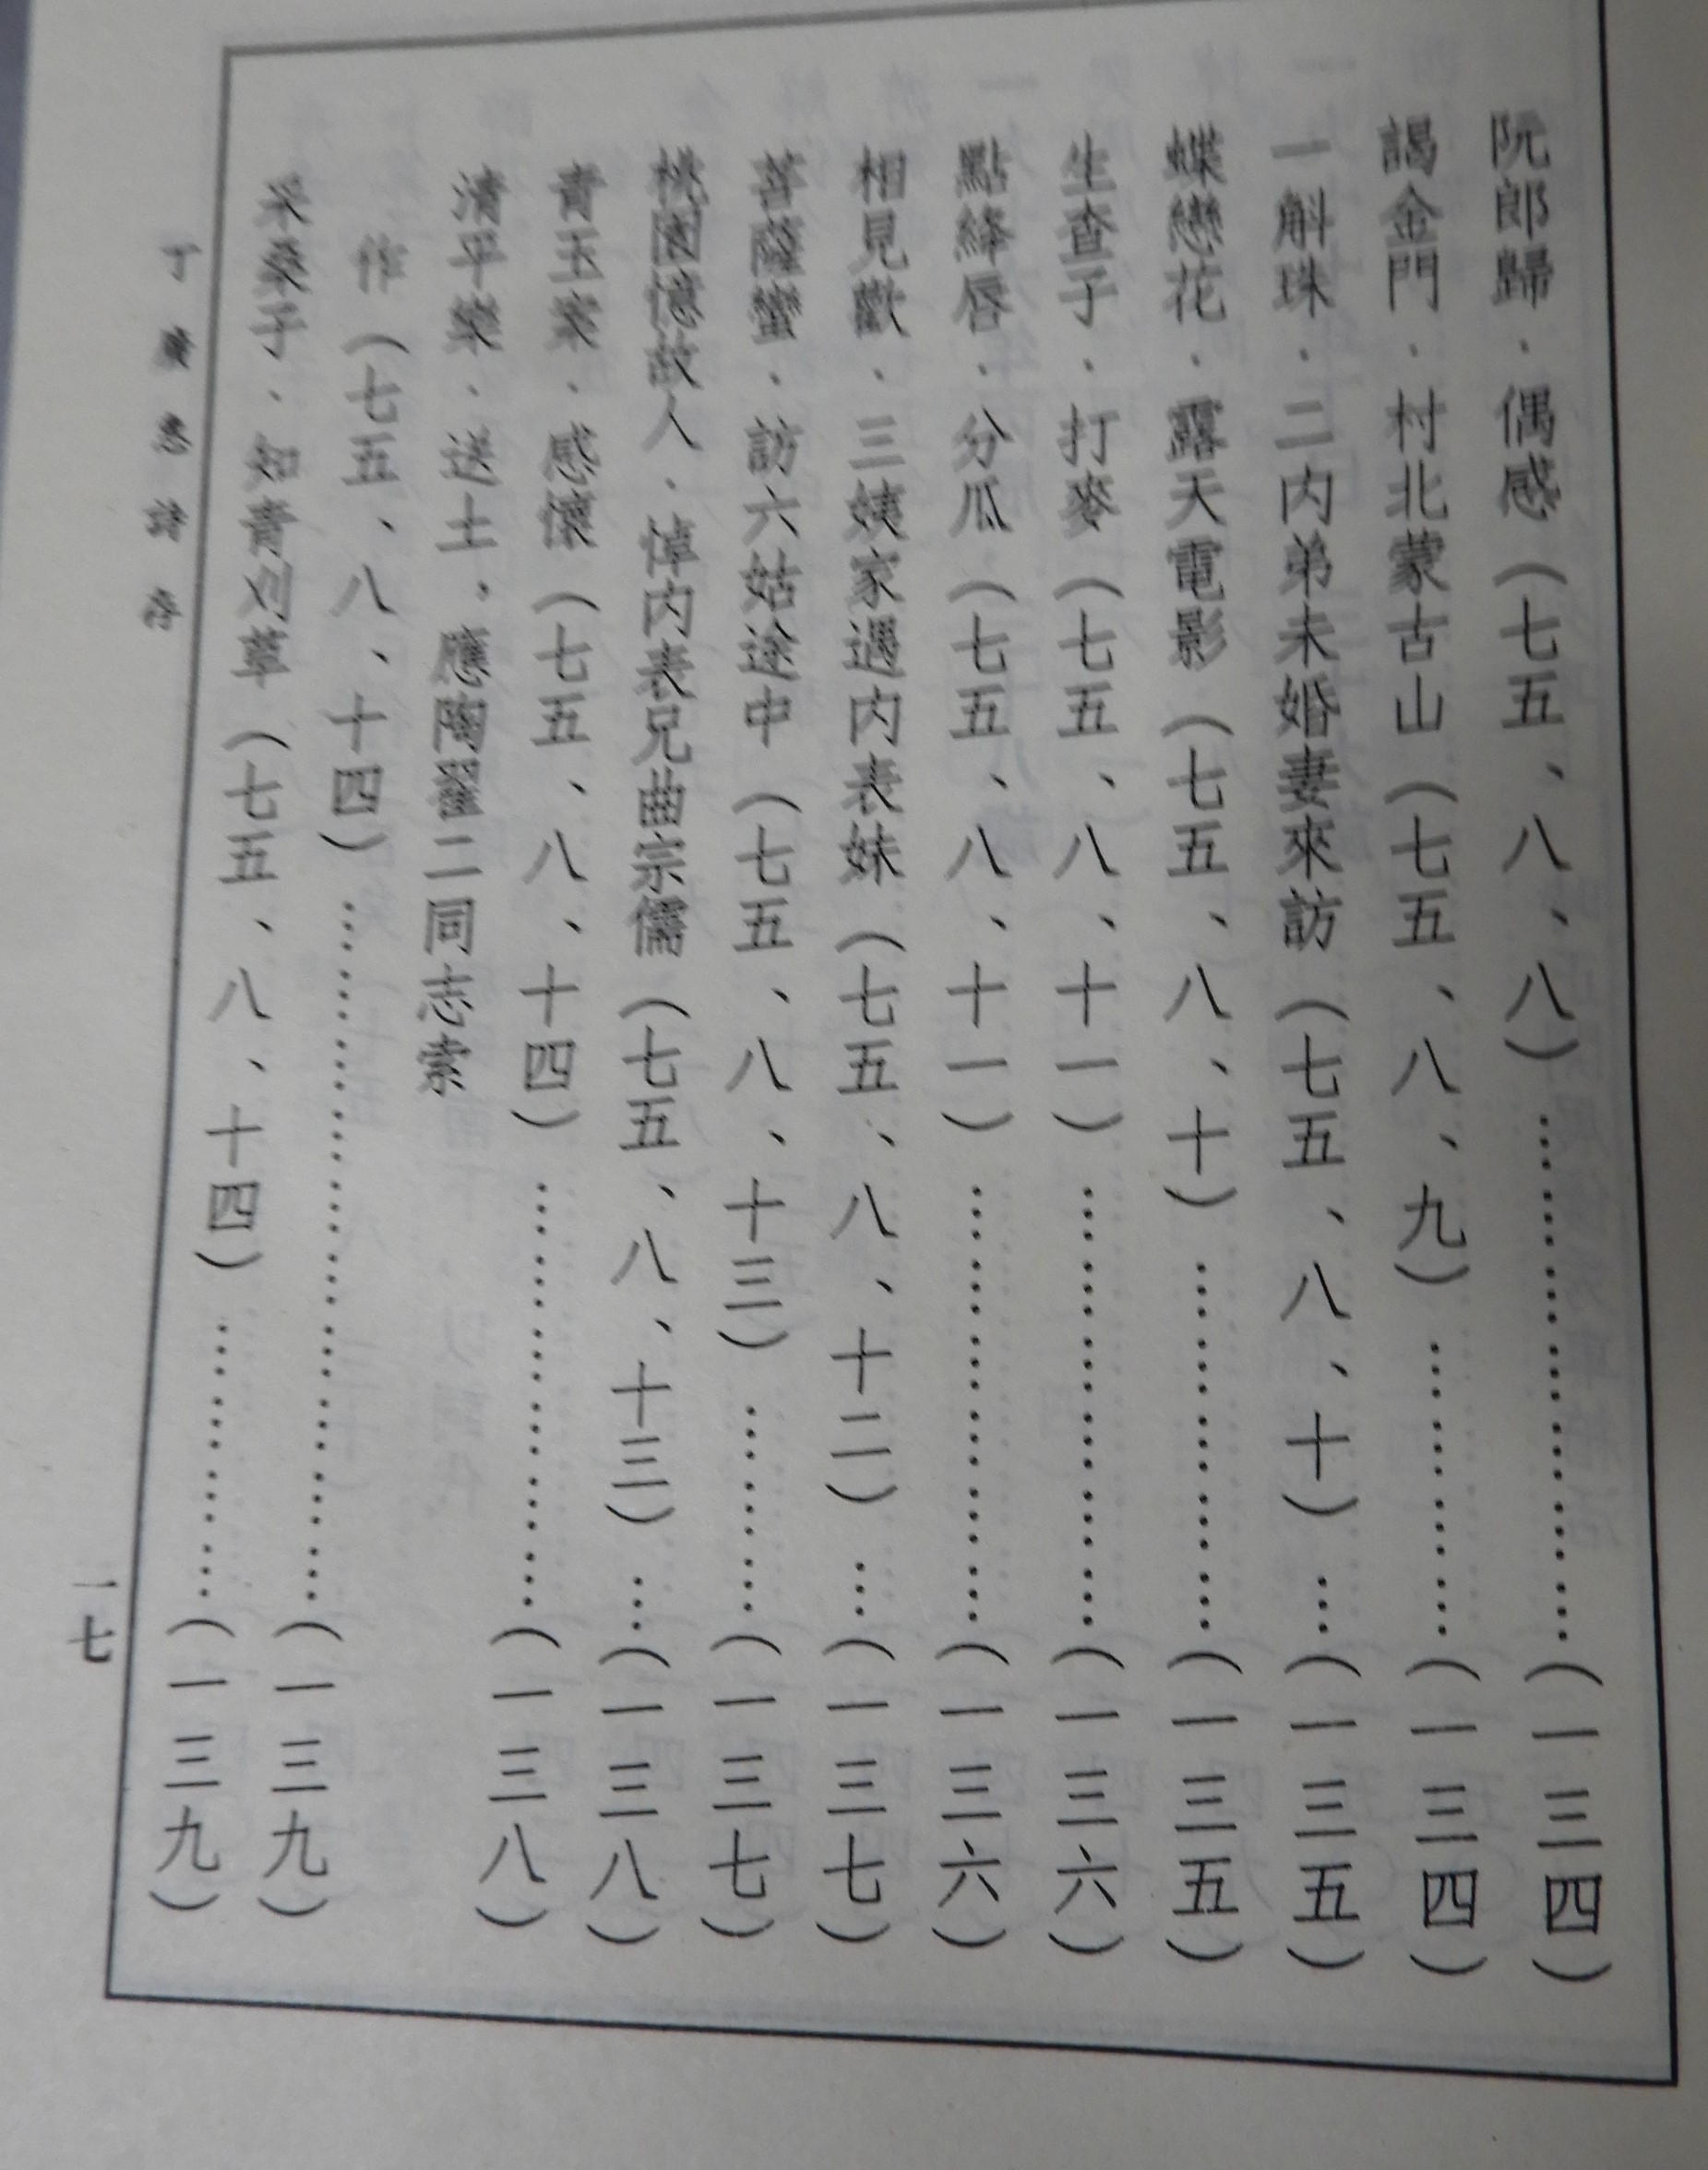 阮郎歸．偶感（七五、八、八）……………………（一三四）
謁金門．村北蒙古山（七五、八、九）……………（一三四）
一斛珠．二内弟未婚妻來訪（七五、八、十）…（一三五）
蝶戀花．露天電影（七五、八、十）………………（一三五）
生查子．打麥（七五、八、十一）…………………（一三六）
點絳唇．分瓜（七五、八、十一）…………………（一三六）
相見歡．三姨家遇内表妹（七五、八、十二）…（一三七）
菩薩蠻．訪六姑途中（七五、八、十三）………（一三七）
桃園憶故人．悼内表兄曲宗儒（七五、八、十三）…（一三八）
青玉案．感懷（七五、八、十四）…………………（一三八）
清平樂．送土，應陶翟二同志索
作（七五、八、十四）……………………………（一三九）
采桑子．知青刈草（七五、八、十四）…………（一三九）
丁廣惠詩存
一七